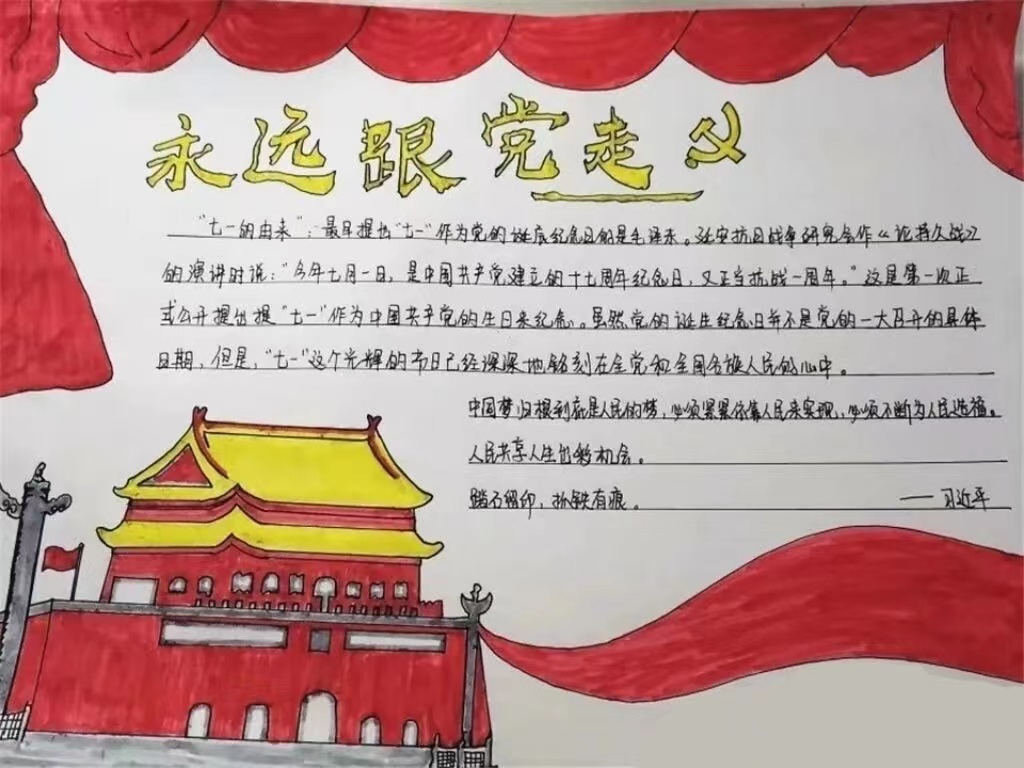 永远跟党走
"七一的由来"：最早提出"七一"作为党的诞辰纪念日的是毛泽东。延安抗日战争研究会作《论持久战》
的演讲时说："今年七月一日，是中国共产党建立的十七周年纪念日，又正当抗战一周年。"这是第一次正
式公开提出提"七一"作为中国共产党的生日来纪念。虽然党的诞生纪念日并不是党的一大召开的具体
日期，但是，"七一"这个光辉的节日已经深深地铭刻在全党和全国各族人民的心中。
中国梦归根到底是人民的梦，必须紧紧依靠人民来实现，必须不断为人民造福。
人民共享人生出彩机会。
踏石留印，抓铁有痕。 ——习近平